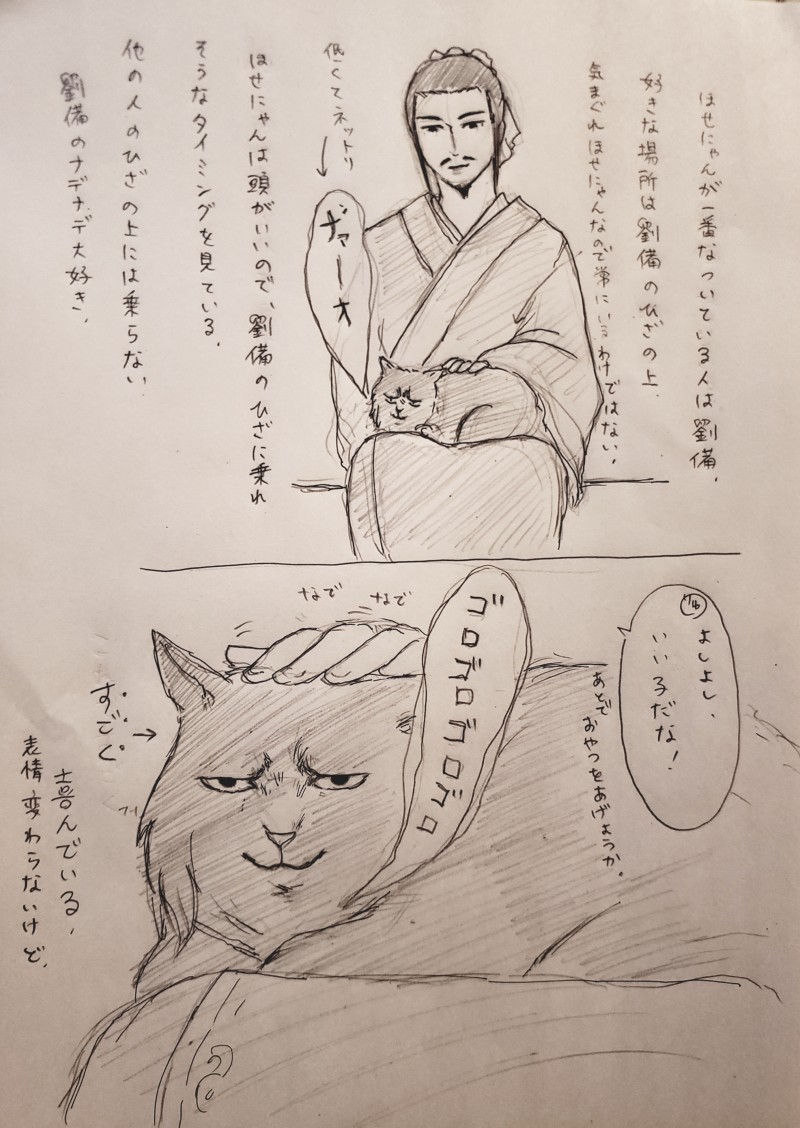 ほせにゃんが一番なついている人は劉備。
好きな場所は劉備のひざの上。
気まぐれほせにゃんなので常にいるわけではない。
低くてネットリ
ヴァーオ
ほせにゃんは頭がいいので、劉備のひざに乗れ
そうなタイミングを見ている。
他の人のひざの上には乗らない。
劉備のナデナデ大好き。
よしよし、
いい子だな!
あとでおやつをあげようか。
ゴロゴロゴロゴロ
なで なで
すごく
喜んでいる。
表情変わらないけど。